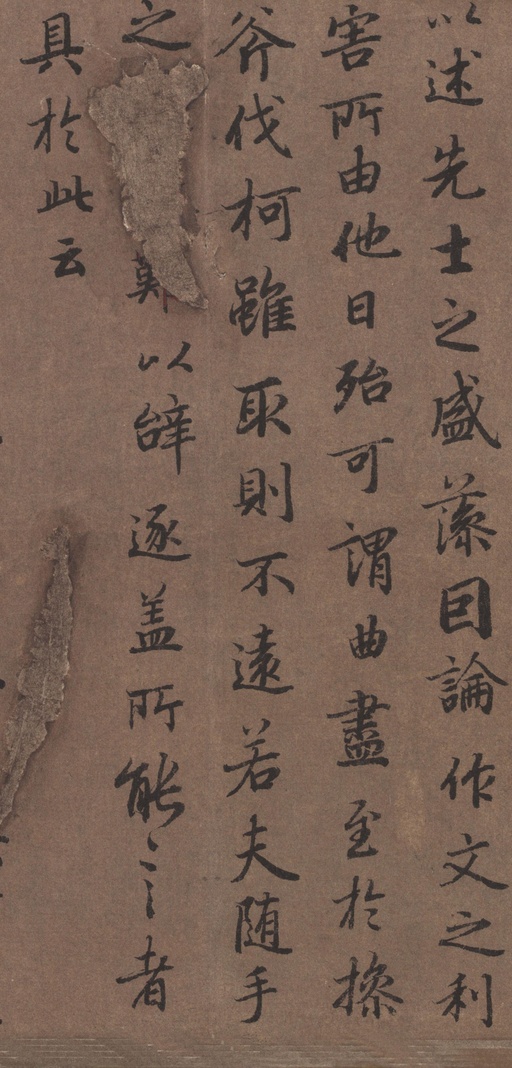 以述先士之盛藻囙論作文之利
害所由他日殆可謂曲盡至扵操
斧伐柯雖取則不遠若夫随手
之以辝逐盖所能言者
具扵此云